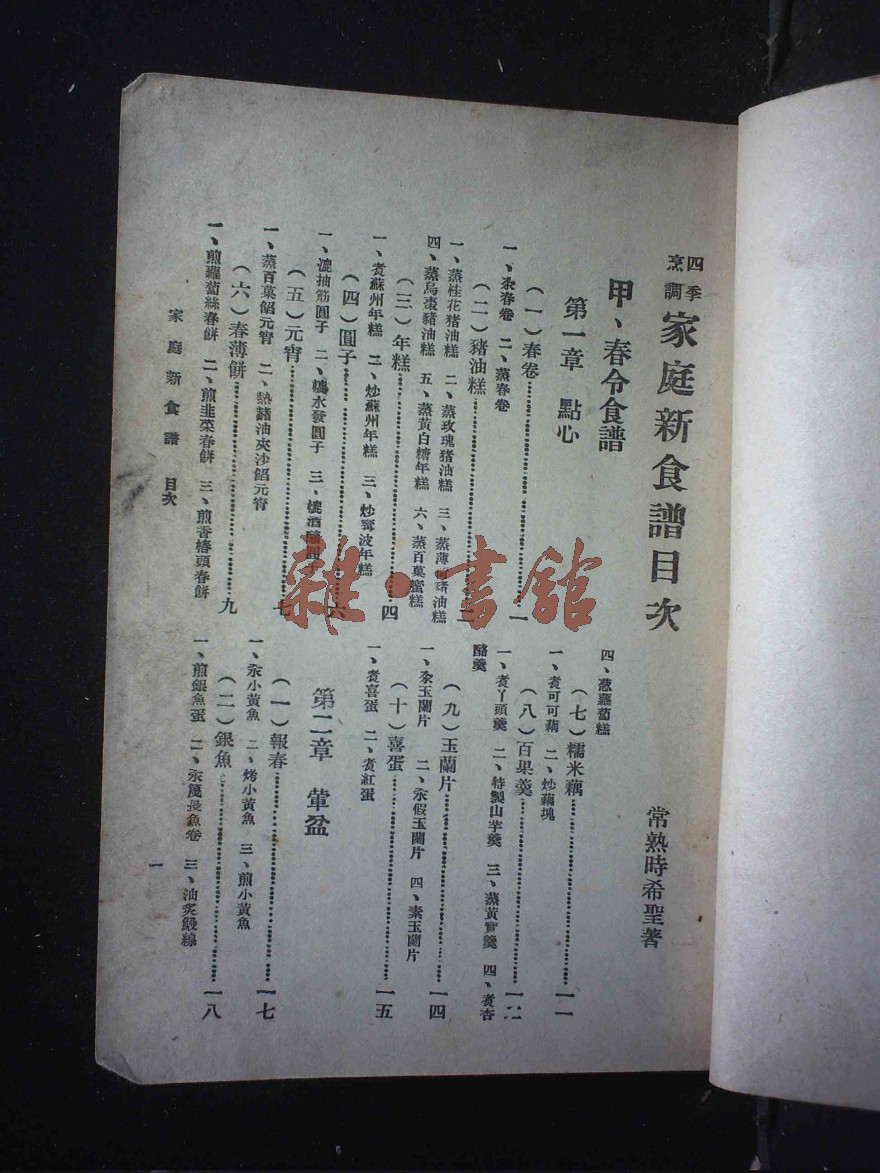 四季烹調 家庭新食譜目次
常熟時希聖著
甲、春令食譜
第一章 點心
（一）春卷 一
一、氽春卷 二、蒸春卷
（二）豬油糕 二
一、蒸桂花猪油糕 二、蒸玫瑰猪油糕 三、蒸薄荷猪油糕
四、蒸烏棗豬油糕 五、蒸黃白糖年糕 六、蒸百菓蜜糕
（三）年糕 四
一、煑蘇州年糕 二、炒蘇州年糕 三、炒寗波年糕
（四）圓子 六
一、漉抽筋圓子 二、水發圓子 三、酒釀圓子
（五）元宵 七
一、蒸百菓餡元宵 二、熱豬油夾沙餡元宵
（六）春薄餅 九
一、煎蘿蔔絲春餅 二、煎韭菜春餅 三、煎香椿頭春餅
四、葱蘿蔔糕
（七）糯米藕 一一
一、煑可可藕 二、炒藕塊
（八）百果羹 一二
一、煑丫頭羹 二、特製山芋羹 三、蒸黃實羹 四、煑杏
酪羹
（九）玉蘭片 一四
一、氽玉蘭片 二、氽假玉蘭片 四、素玉蘭片
（十）喜蛋 一五
一、煑喜蛋 二、煑紅蛋
第二章 葷盆
（一）報春 一七
一、氽小黃魚 二、烤小黃魚 三、煎小黃魚
（二）銀魚 一八
一、煎銀魚蛋 二、氽長魚卷 三、油炙鰻線
家庭新食譜 目次
一
雜·書館